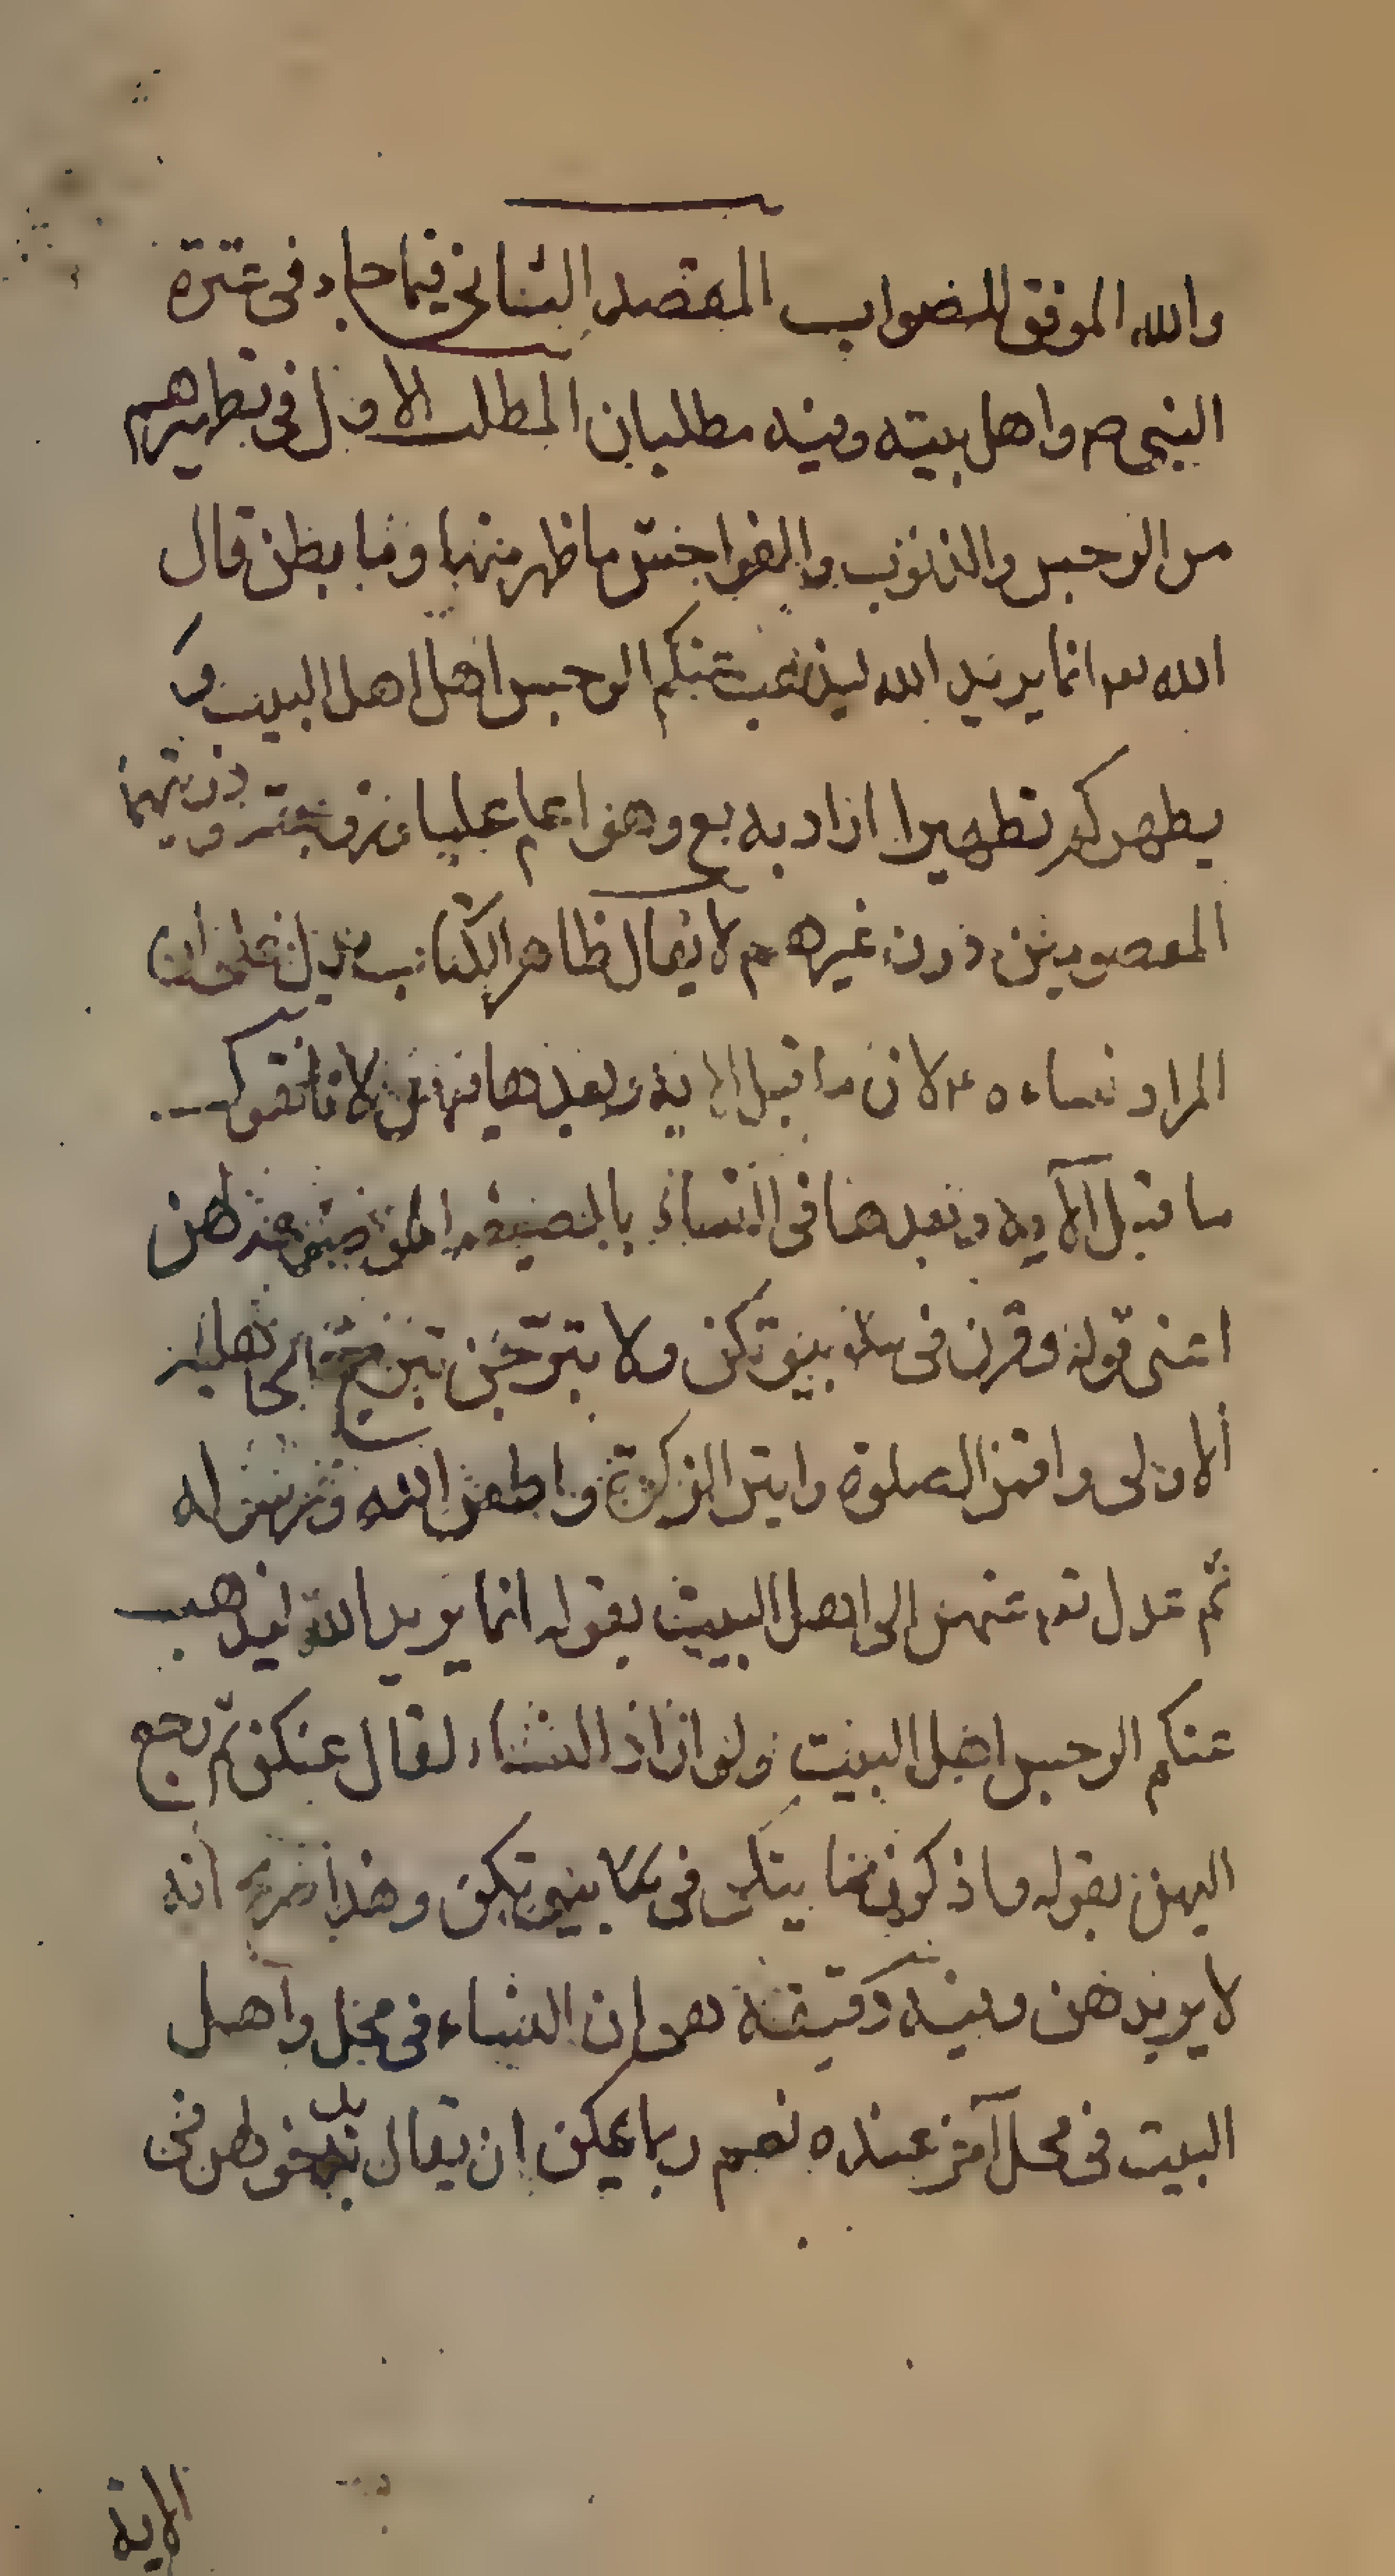 والله الموفق للصواب المقصد الثاني فيما جاء في عترة
النبي ص واهل بيته وفيه مطلبان المطلب الاول في تطهيرهم
من الرجس والذنوب والفواحش ما ظهر منها وما بطن قال
الله تعه انما يريد الله ليذهب عنكم الرجس اهل اهل البيت و
يطهركم تطهيرا اراد به مع وهو اعم عليا وذريتهما
المعصومين دون غيرهم لا يقال ظاهر الكتاب يدل على ان
المراد نساءه ع لان ما قبل الاية وبعدها فيهن لانا نقول
ما قبل الآية وبعدها في النساء بالصيغة لهن
اعنى قوله وقرن في بيوتكن ولا تبرجن تبرج الجاهلية
الاولى واقمن الصلوة واتين الزكوة واطعن الله ورسوله
ثم عدل تعه عنهن الى اهل البيت بقوله انما يريد الله ليذهب
عنكم الرجس اهل البيت ولو اراد النساء لقال عنكن ثم رجع
اليهن بقوله واذكرن ما يتلى في بيوتكن وهذا صريح انه
لا يريدهن وفيه دقيقة هو ان النساء في محل واهل
البيت في محل آخر عنده نعم ربما يمكن ان يقال بل بدخولهن في
الاية